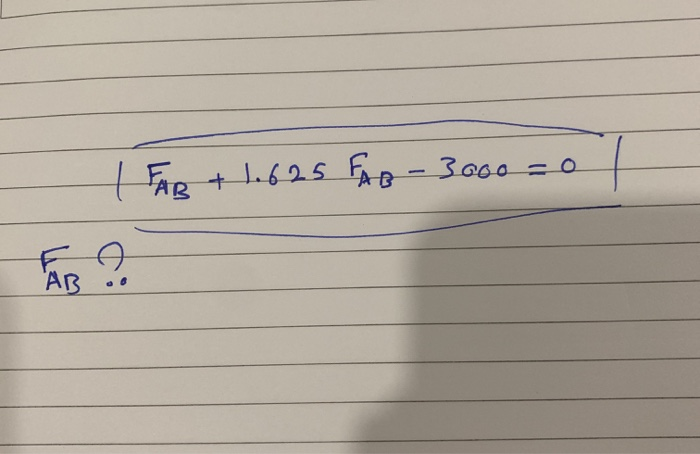 F_AB + 1.625 F_AB - 3000 = 0
F_AB ?